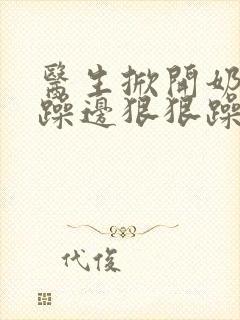 醫生掀開奶
躁邊狠狠躁
代俊